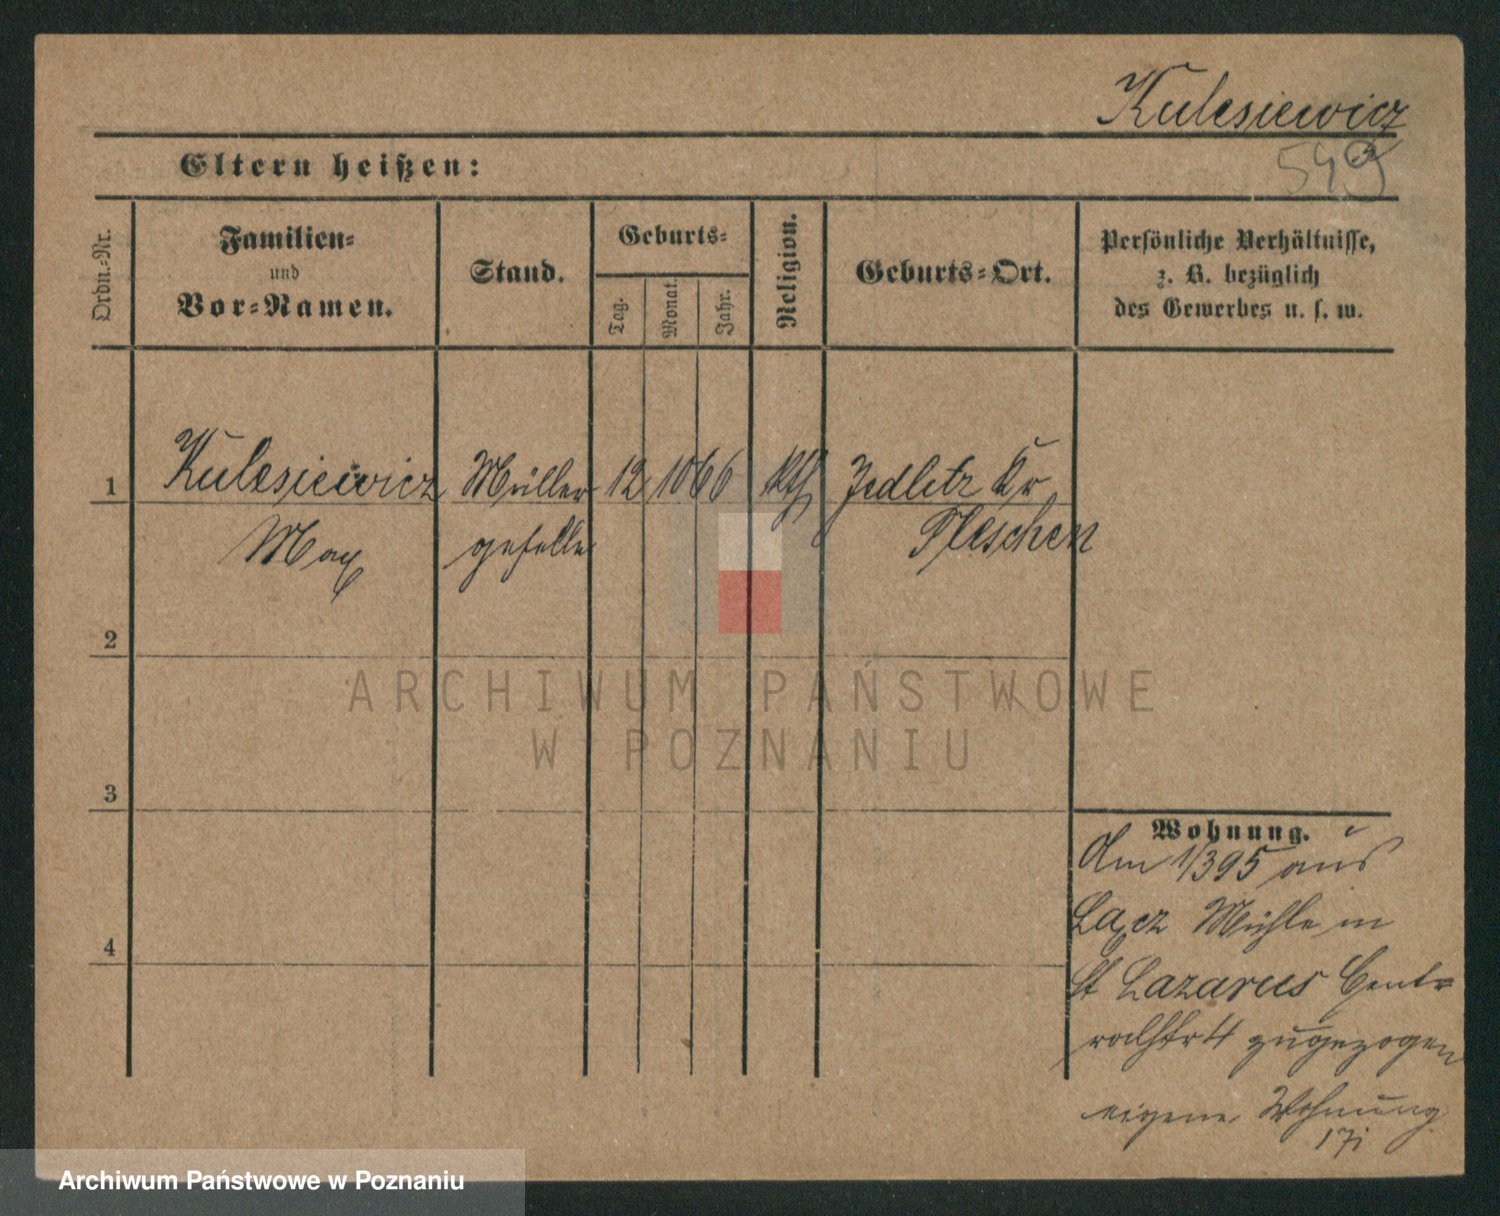 Kulesiewicz
549
Eltern heißen:
Ordn.-Nr.
Familien-
und
Vor-Namen.
Stand.
Geburts-
Tag.
Monat.
Jahr.
Religion.
Geburts-Ort.
Persönliche Verhältnisse,
z. B. bezüglich
des Gewerbes u. s. w.
1 Kulesiewicz Müller 12 10 66 kth Jedletz Kr
Max geselle Pleschen
2
3
4
Wohnung.
Am 1/3 95 aus
Mühle in
St Lazarus Cent
ralstr 4 zugezogen
eigene Wohnung
ARCHIWUM PAŃSTWOWE
W POZNANIU
Archiwum Państwowe w Poznaniu